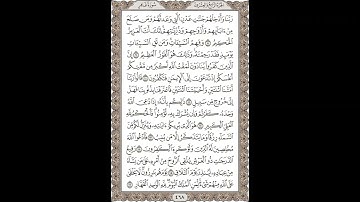 الجزء الرابع والعشرون سورة غافر
رَبَّنَا وَأَدْخِلْهُمْ جَنَّٰتِ عَدْنٍ ٱلَّتِى وَعَدتَّهُمْ وَمَن صَلَحَ
مِنْ ءَابَآئِهِمْ وَأَزْوَٰجِهِمْ وَذُرِّيَّٰتِهِمْ إِنَّكَ أَنتَ ٱلْعَزِيزُ
ٱلْحَكِيمُ ٨ وَقِهِمُ ٱلسَّيِّـَٔاتِ وَمَن تَقِ ٱلسَّيِّـَٔاتِ
يَوْمَئِذٍ فَقَدْ رَحِمْتَهُۥ وَذَٰلِكَ هُوَ ٱلْفَوْزُ ٱلْعَظِيمُ ٩ إِنَّ
ٱلَّذِينَ كَفَرُوا۟ يُنَادَوْنَ لَمَقْتُ ٱللَّهِ أَكْبَرُ مِن مَّقْتِكُمْ
أَنفُسَكُمْ إِذْ تُدْعَوْنَ إِلَى ٱلْإِيمَٰنِ فَتَكْفُرُونَ ١٠ قَالُوا۟ رَبَّنَآ
أَمَتَّنَا ٱثْنَتَيْنِ وَأَحْيَيْتَنَا ٱثْنَتَيْنِ فَٱعْتَرَفْنَا بِذُنُوبِنَا فَهَلْ
إِلَىٰ خُرُوجٍ مِّن سَبِيلٍ ١١ ذَٰلِكُم بِأَنَّهُۥٓ إِذَا دُعِىَ ٱللَّهُ
وَحْدَهُۥ كَفَرْتُمْ وَإِن يُشْرَكْ بِهِۦ تُؤْمِنُوا۟ فَٱلْحُكْمُ لِلَّهِ
ٱلْعَلِىِّ ٱلْكَبِيرِ ١٢ هُوَ ٱلَّذِى يُرِيكُمْ ءَايَٰتِهِۦ وَيُنَزِّلُ لَكُم
مِّنَ ٱلسَّمَآءِ رِزْقًا وَمَا يَتَذَكَّرُ إِلَّا مَن يُنِيبُ ١٣ فَٱدْعُوا۟ ٱللَّهَ
مُخْلِصِينَ لَهُ ٱلدِّينَ وَلَوْ كَرِهَ ٱلْكَٰفِرُونَ ١٤ رَفِيعُ
ٱلدَّرَجَٰتِ ذُو ٱلْعَرْشِ يُلْقِى ٱلرُّوحَ مِنْ أَمْرِهِۦ عَلَىٰ مَن يَشَآءُ
مِنْ عِبَادِهِۦ لِيُنذِرَ يَوْمَ ٱلتَّلَاقِ ١٥ يَوْمَ هُم بَٰرِزُونَ لَا يَخْفَىٰ
عَلَى ٱللَّهِ مِنْهُمْ شَىْءٌ لِّمَنِ ٱلْمُلْكُ ٱلْيَوْمَ لِلَّهِ ٱلْوَٰحِدِ ٱلْقَهَّارِ ١٦
٤٦٨